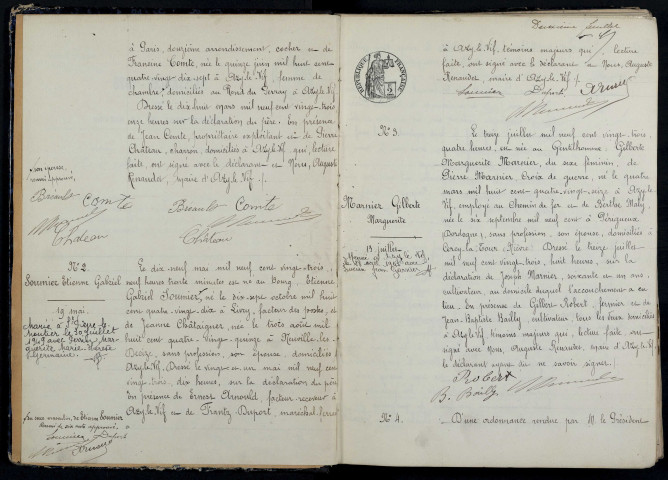 à Paris, douzième arrondissement, cocher et de
Francine Comte, née le quinze juin mil huit cent
quatre vingt dix sept à Azy-le-Vif, femme de
chambre, domiciliés au Rond du Perray à Azy-le-Vif
Dressé le dix huit mars mil neuf cent vingt-trois
onze heures sur la déclaration du père. En présence
de Jean Comte, propriétaire exploitant et de Pierre
Château, charron, domiciliés à Azy-le-Vif qui, lecture
faite, ont signé avec le déclarant et Nous, Auguste
Renaudet, maire d'Azy-le-Vif
Comte
Château
Comte
Château
N° 2
Soumier Etienne Gabriel
19 mai
Marié à St Pierre le
Moutier le 30 juillet
1949 avec
Marie Thérèse
Germaine
Le dix neuf mai mil neuf cent vingt-trois,
neuf heures trente minutes est né au Bourg, Etienne
Gabriel Soumier, né le dix sept octobre mil huit
cent quatre-vingt-dix à Livry, facteur des postes, et
de Jeanne Châtaigner, née le trois août mil
huit cent quatre-vingt-quinze à Neuville-les-
Decize, sans profession, son épouse, domiciliés à
Azy-le-Vif. Dressé le vingt et un mai mil neuf cent
vingt-trois, dix heures, sur la déclaration du père
En présence de Ernest Arnould, facteur receveur à
Azy-le-Vif et de Frantz Duport, maréchal ferrant
Soumier
Duport
Deuxième feuillet
à Azy-le-Vif, témoins majeurs qui, lecture
faite, ont signé avec le déclarant et Nous, Auguste
Renaudet, maire d'Azy-le-Vif
Soumier Duport
REPUBLIQUE FRANÇAISE
N° 3.
Marnier Gilberte
Marguerite
13 juillet
Le treize juillet mil neuf cent vingt-trois,
quatre heures, est née au Gentilhomme, Gilberte
Marguerite Marnier, du sexe féminin, de
Pierre Marnier Croix de guerre, né le quatre
mars mil huit cent quatre-vingt-seize à Azy-le-
Vif, employé au Chemin de fer et de Berthe Maly,
née le six septembre mil neuf cent à Périgueux
(Dordogne), sans profession, son épouse, domiciliés à
Cercy-la-Tour Nièvre. Dressé le treize juillet
mil neuf cent vingt-trois, huit heures, sur la
déclaration de Joseph Marnier, soixante et un ans,
cultivateur, au domicile duquel l'accouchement a eu
lieu. En présence de Gilbert Robert, fermier et de
Jean Baptiste Bailly, cultivateur, tous les deux domiciliés
à Azy-le-Vif, témoins majeurs qui, lecture faite ont
signé avec Nous, Auguste Renaudet, maire d'Azy-le-Vif
le déclarant ayant dit ne savoir signer.
Robert
B. Bailly
N° 4.
D'une ordonnance rendue par M. le Président